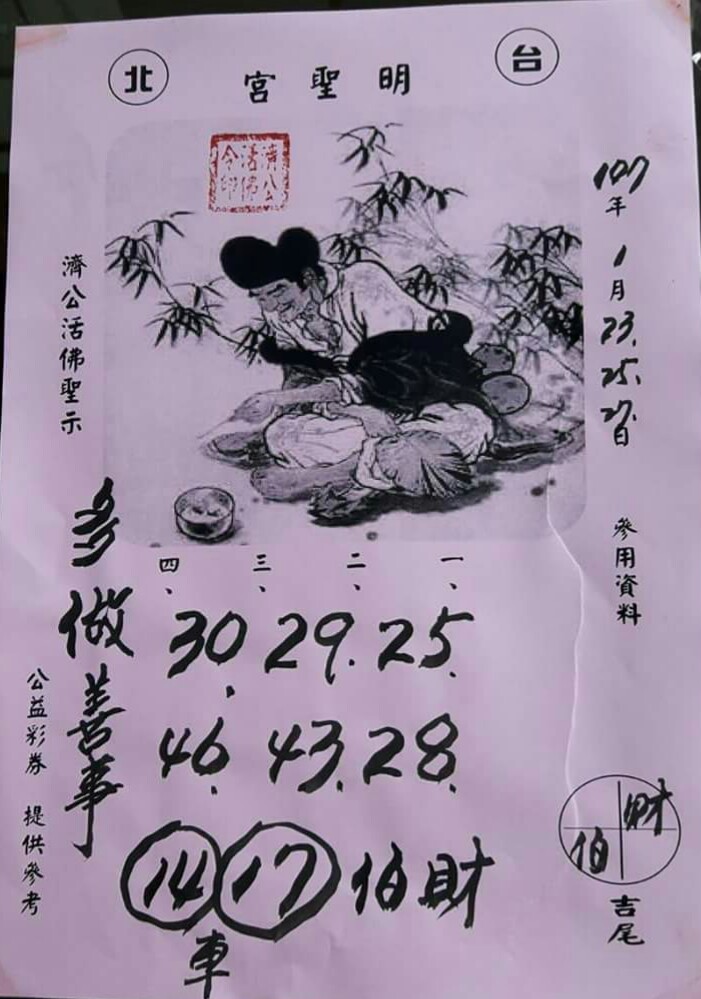 台北
明聖宮
濟公活佛令印
107年1月23.25.27日
參用資料
四、 三、 二、 一、
30. 29. 25.
46. 43. 28.
14 17 伯財
車
財
伯
吉尾
濟公活佛聖示
多做善事
公益彩券 提供參考